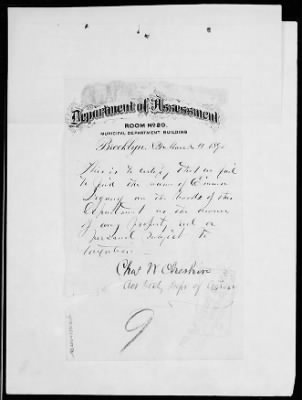 Department of Assessment
ROOM No 20.
MUNICIPAL DEPARTMENT BUILDING
Brooklyn, 189
This is to certify that we fail
to find the name of
on the books of this
Department as the owner
of any property real or
personal subject to
taxation
Chas W
Dept of
9